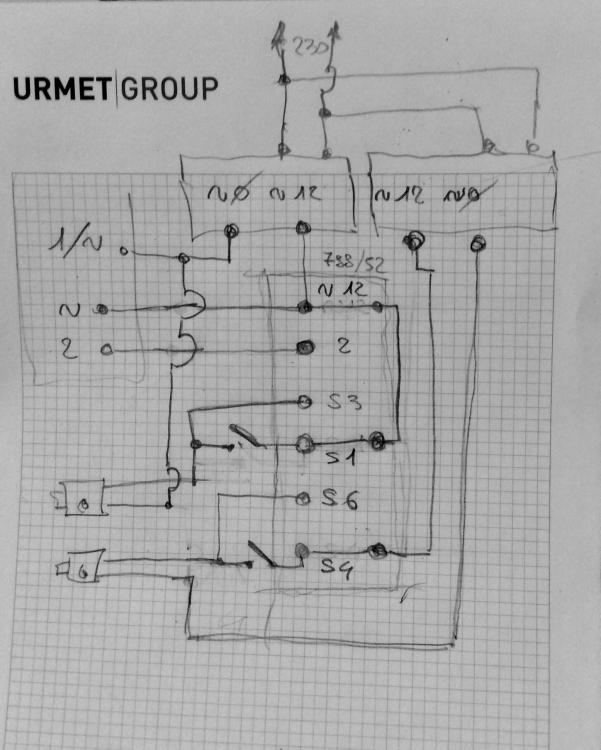 230
URMET|GROUP
~Ø ~12 ~12 ~Ø
1/~
788/52
~ ~12
2 2
S3
S1
S6
S4